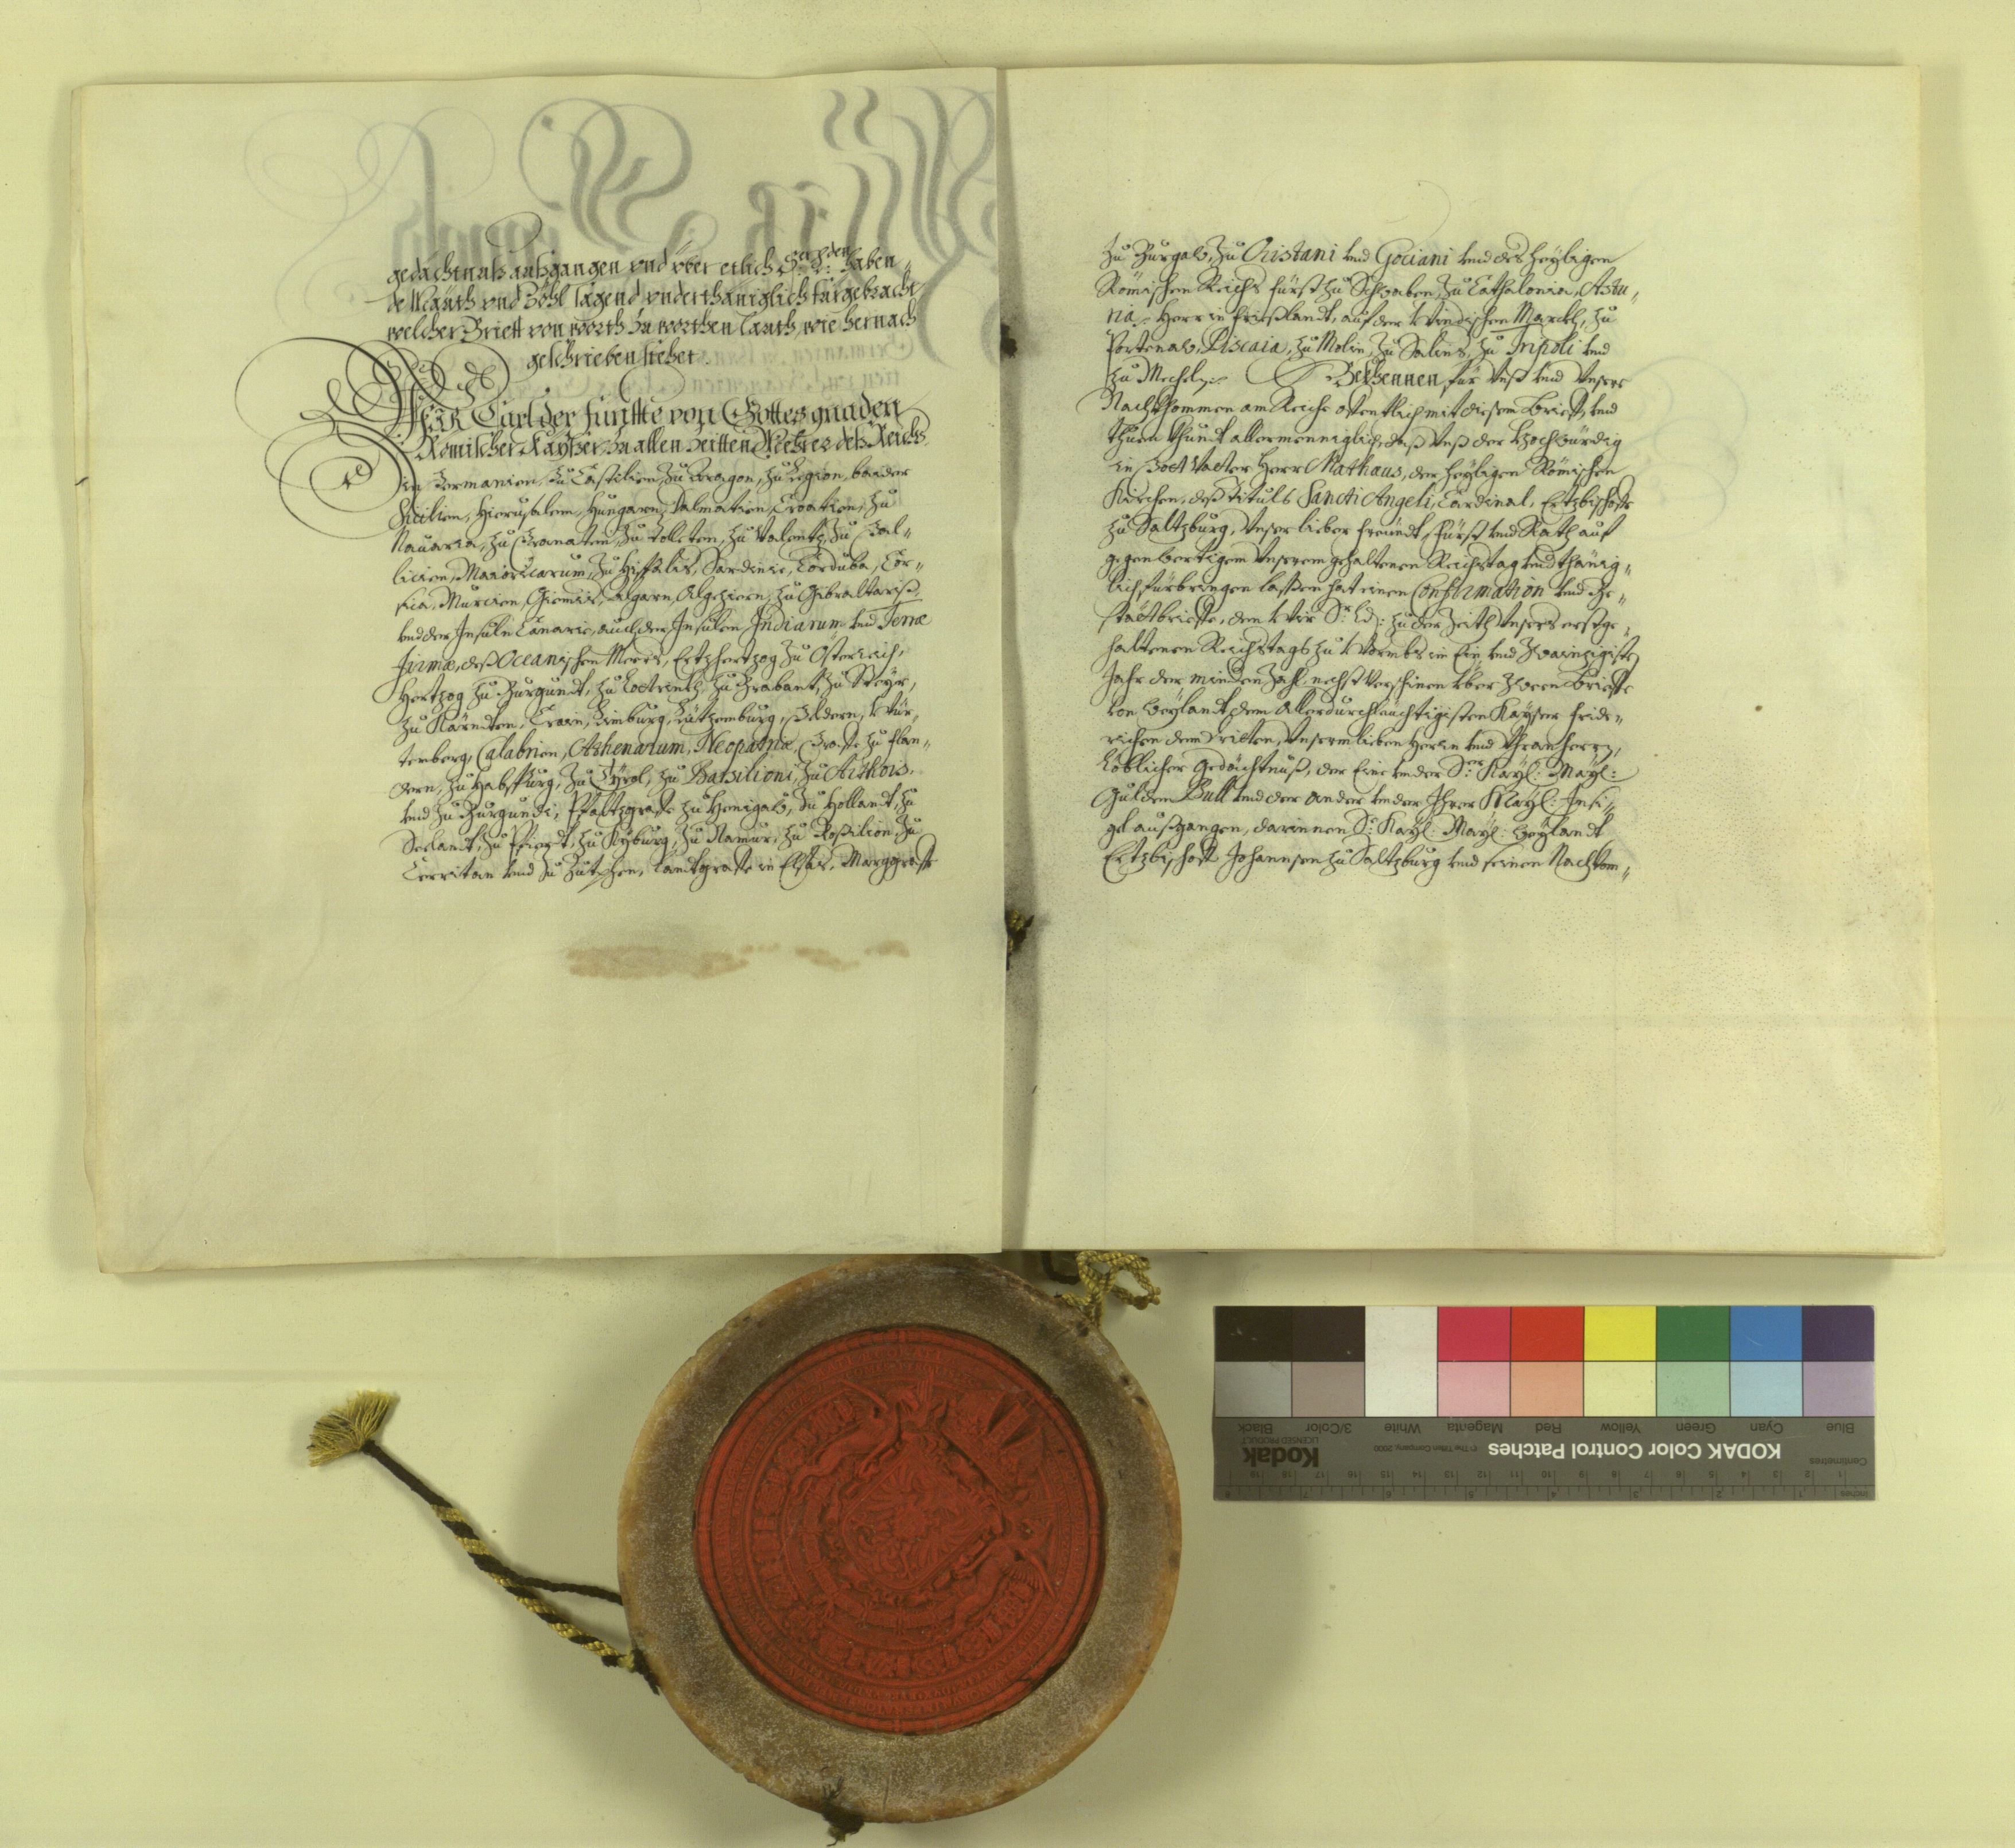 gedachtnuß außgangen und über etlich Sr. Ld. den haben„
de Mauth und Zöhl Tagend underthäniglich fürgebracht
welcher Brieff von worth zu worthen lauth, wie hernach
geschrieben stehet.
Wir Carl der fünffte von Gottes gnaden
Römischer Kayßer, zu allen Zeitten Mehrer deß Reichs
in Germanien, zu Castilien, zu Arragon, zu Legion, baider
Sicilien, Hierusalem, Hungarn, Dalmatien, Croatien, zu
Navaria, zu Granaten, zu Tolleten, zu Valentz, zu Gal„
licien, Maioricarum, zu Hispalis, Sardinie, Corduba, Cor„
sica, Murcien, Giennis, Algarn, Algezirn, zu Gibraltaris,
und der Insuln Canarie, auch der Insulen Indiarum und Terræ
firmæ, deß Oceanischen Meers, Ertzhertzog zu Österreich,
Hertzog zu Burgundt, zu Lottrinkh, zu Brabant, zu Steyr,
zu Kärndten, Crain, Limburg, Lützemburg, Geldern, Wür„
temberg, Calabrien, Athenarum, Neopatriæ, Graffe zu Flan„
dern, zu Habspurg, zu Tÿrol, zu Barsilioni, zu Arthois,
und zu Burgundi, Pfaltzgraffe zu Henigaw, zu Hollandt, zu
Seelandt, zu Pfierdt, zu Kyburg, zu Namur, zu Roßilion, zu
Cerritan und zu Zütphen, Landtgraffe in Elsäs, Marggraffe
zu Burgaw, zu Oristani und Gociani und des heyligen
Römischen Reichs Fürst zu Schwaben, zu Cathalonia, Astu„
ria, Herr in Frießlandt, auf der Windischen Marckh, zu
Portenaw, Biscaia, zu Molin, zu Salins, zu Tripoli und
zu Mecheln. Bekhennen für Unß und Unsere
Nachkhommen am Reiche offentlich mit diesem Brieff, und
thuen khundt allermenniglich, daß Unß der Hochwürdig
in Gott Vatter Herr Mathäus, der heyligen Römischen
Kirchen, deß Tituls Sancti Angeli, Cardinal, Ertzbischoffe
zu Saltzburg, Unser lieber freundt, Fürst und Rath auf
gegenwertigem Unserem gehaltenen Reichstag underthänig„
lich fürbringen lassen hat einen Confirmation und Be„
stättbrieffe, den Wir Sr. Ld: zu der Zeith Unsers erstge„
haltenen Reichstags zu Wormbs im Ein und Zwainzigisten
Jahr der mindern Zahl, nechst verschinen über Zween Brieffe
von Weylandt dem Allerdurchläuchtigisten Kayser Fride„
richen dem dritten, Unserem lieben Herrn und Uhranherrn,
Löblicher Gedächtnuß, der Eine under Sr. Kayl: Mayl:
Gulden Bull und der ander under Ihrer Kayl: Insi„
gel außgangen, darinnen Sr. Kayl: Mayl: Weylandt
Ertzbischoffe Johannsen zu Saltzburg und seinen Nachkom„
KODAK Color Control Patches
© The Tiffen Company, 2000
Kodak
LICENSED PRODUCT
Blue Cyan Green Yellow Red Magenta White 3/Color Black
Centimetres
Inches